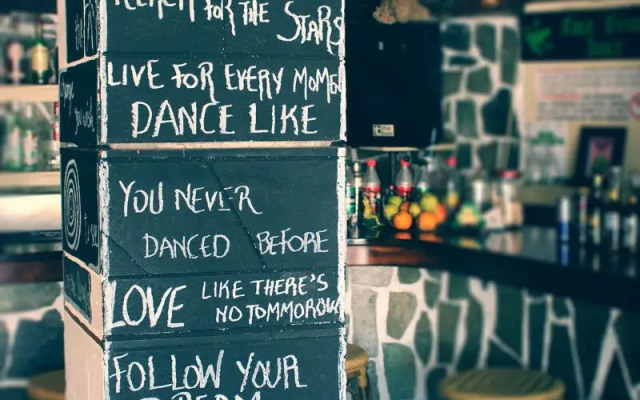 REACH FOR THE STARS
LIVE FOR EVERY MOME
DANCE LIKE
YOU NEVER
DANCED BEFORE
LOVE LIKE THERE'S
NO TOMMOROW
FOLLOW YOUR
DREAM